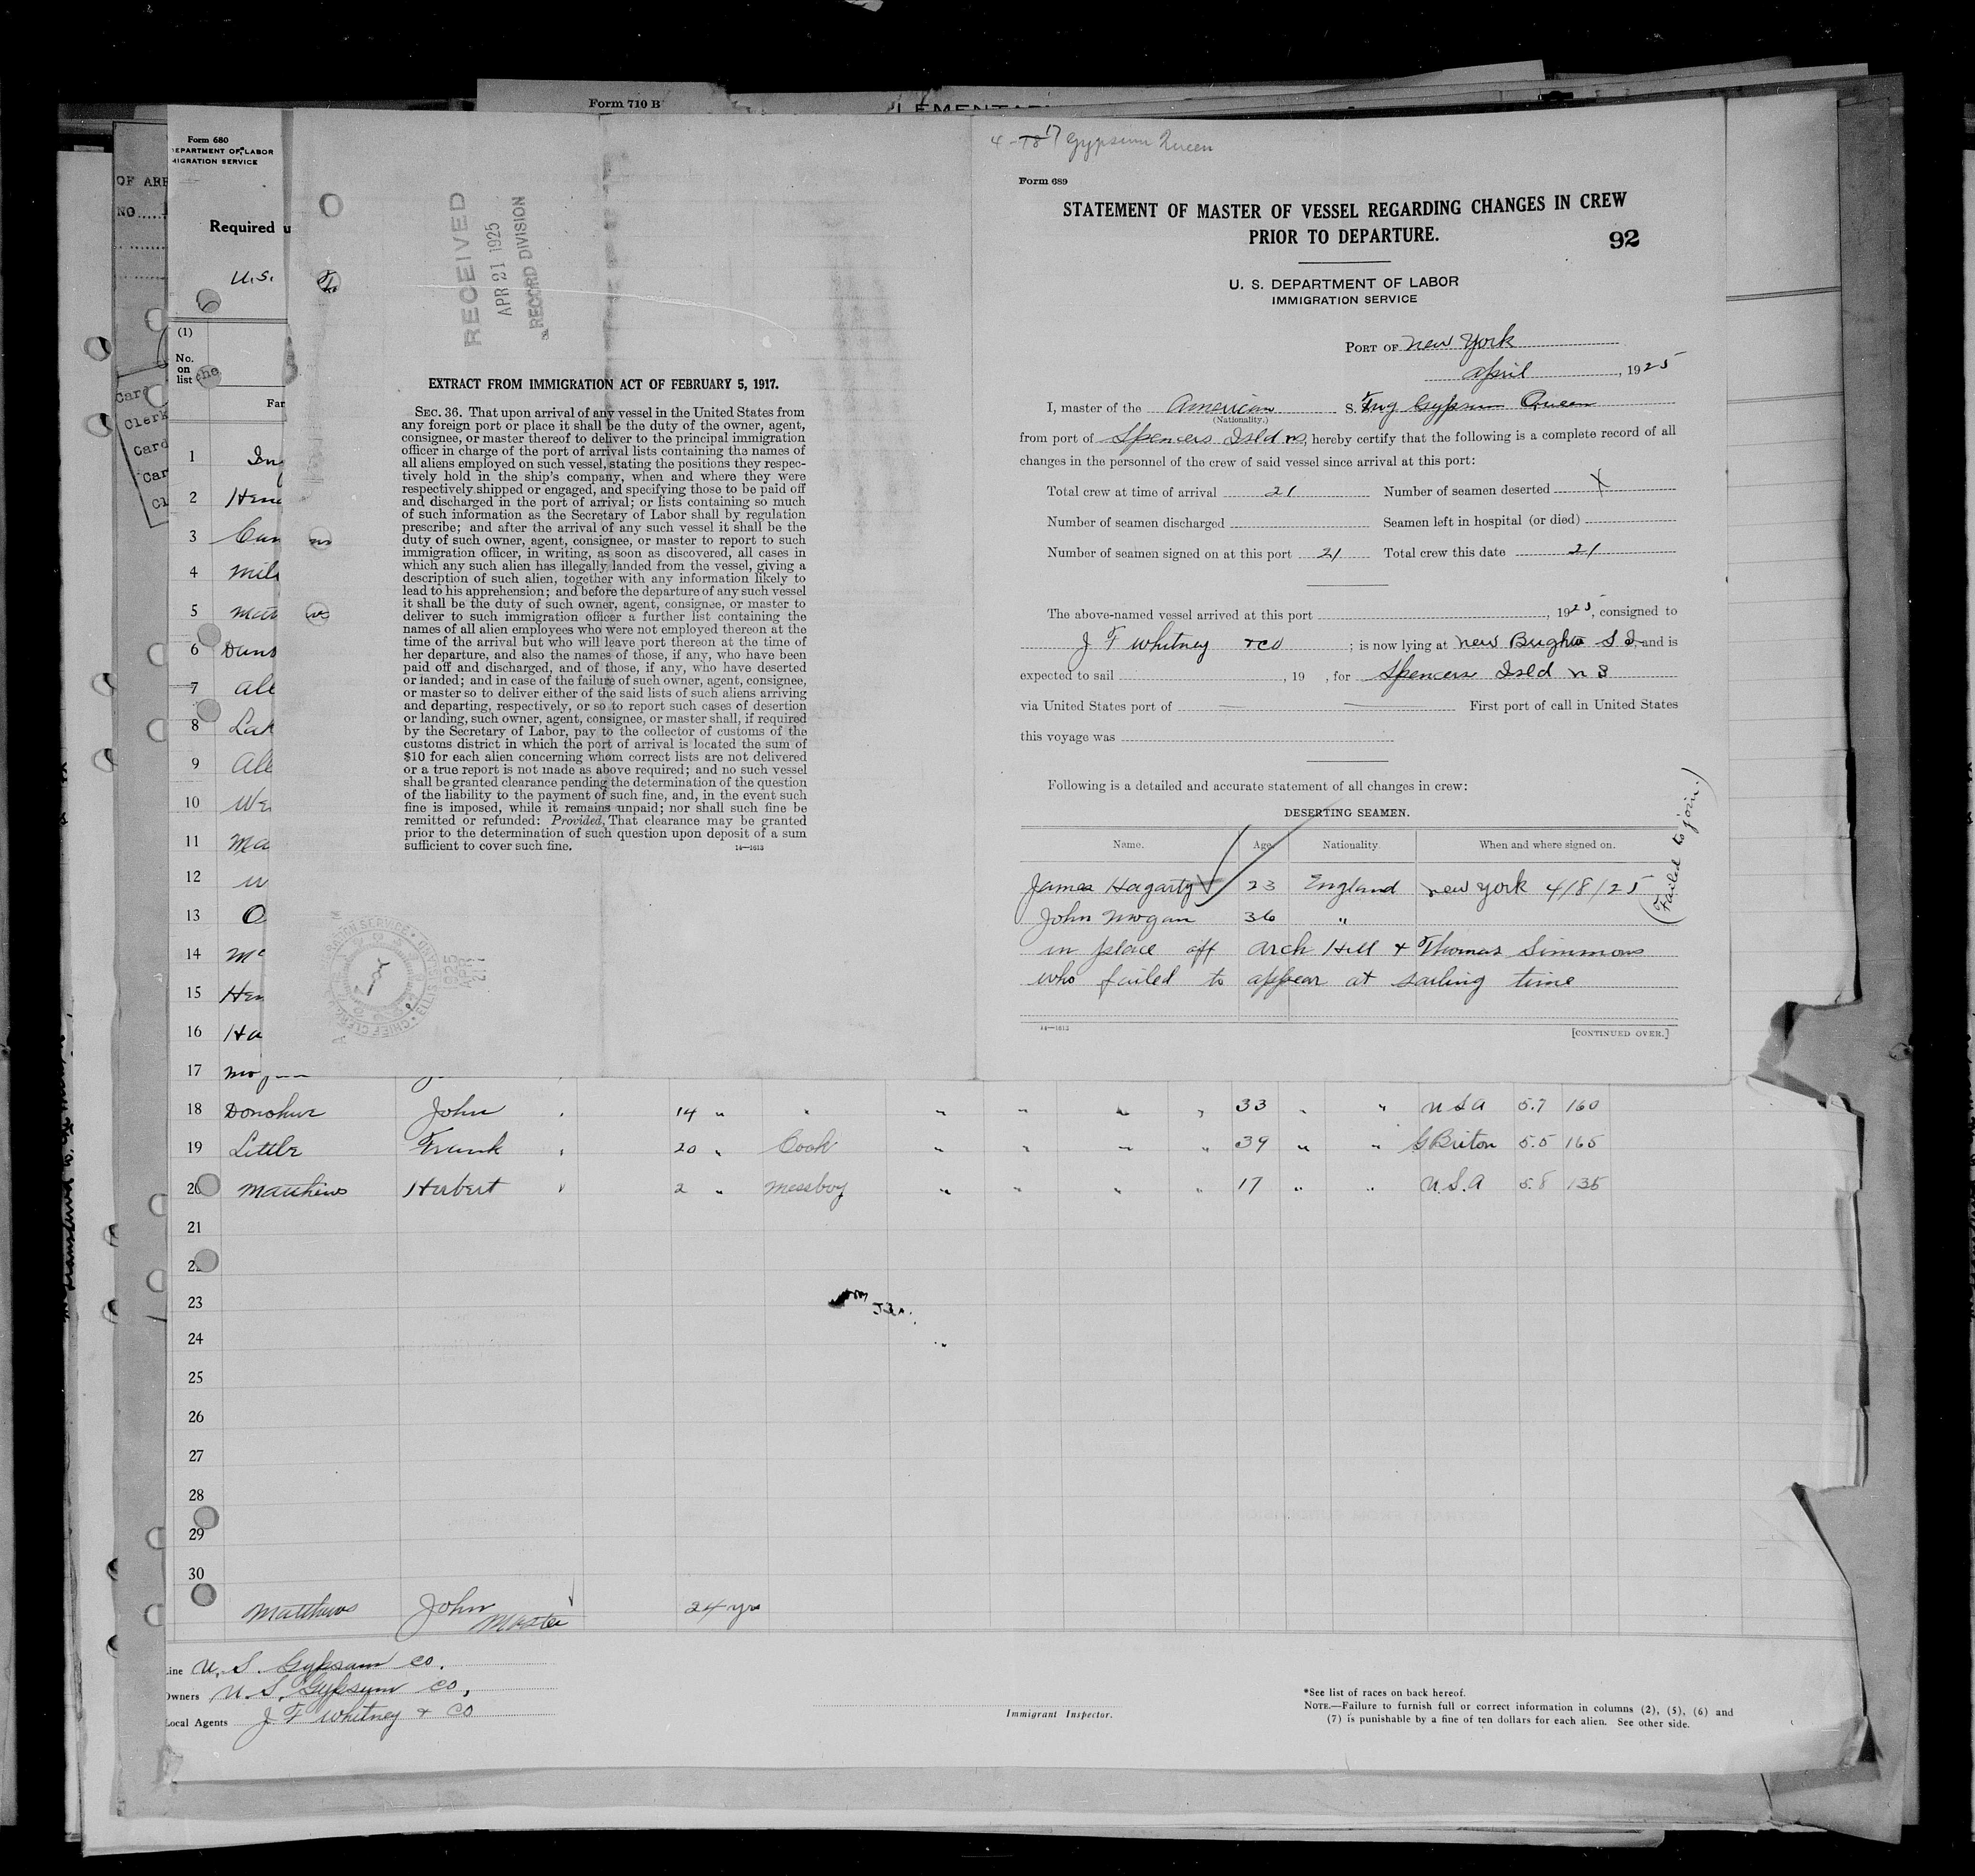 Form 710 B
Form 680
DEPARTMENT OF LABOR
MIGRATION SERVICE
OF ARR
NO.....
Required u
U.S.
(1)
No. on list
Far
Card
Clerk
Card
Car
Cl
1
2 Hene
3
4 Mil
5
6 Duns
7 all
8
9 all
10 We
11 Ma
12
13 O
14 Mc
15 Hen
16 Ha
17
18 Donohue John 14 " " " " " " 33 " " U S A 5.7 160
19 Little Frank 20 " Cook " " " " 39 " " G Briton 5.5 165
20 Matthews Herbert 2 " Messboy " " " " 17 " " U.S.A 5.8 135
21
22
23
24
25
26
27
28
29
30
Matthews John Master 24 yrs
Line U. S. Gypsum Co.
Owners U. S. Gypsum Co,
Local Agents J. F Whitney & Co
Immigrant Inspector.
*See list of races on back hereof.
NOTE.—Failure to furnish full or correct information in columns (2), (5), (6) and
(7) is punishable by a fine of ten dollars for each alien. See other side.
RECEIVED
APR 21 1925
RECORD DIVISION
EXTRACT FROM IMMIGRATION ACT OF FEBRUARY 5, 1917.
SEC. 36. That upon arrival of any vessel in the United States from
any foreign port or place it shall be the duty of the owner, agent,
consignee, or master thereof to deliver to the principal immigration
officer in charge of the port of arrival lists containing the names of
all aliens employed on such vessel, stating the positions they respec-
tively hold in the ship's company, when and where they were
respectively shipped or engaged, and specifying those to be paid off
and discharged in the port of arrival; or lists containing so much
of such information as the Secretary of Labor shall by regulation
prescribe; and after the arrival of any such vessel it shall be the
duty of such owner, agent, consignee, or master to report to such
immigration officer, in writing, as soon as discovered, all cases in
which any such alien has illegally landed from the vessel, giving a
description of such alien, together with any information likely to
lead to his apprehension; and before the departure of any such vessel
it shall be the duty of such owner, agent, consignee, or master to
deliver to such immigration officer a further list containing the
names of all alien employees who were not employed thereon at the
time of the arrival but who will leave port thereon at the time of
her departure, and also the names of those, if any, who have been
paid off and discharged, and of those, if any, who have deserted
or landed; and in case of the failure of such owner, agent, consignee,
or master so to deliver either of the said lists of such aliens arriving
and departing, respectively, or so to report such cases of desertion
or landing, such owner, agent, consignee, or master shall, if required
by the Secretary of Labor, pay to the collector of customs of the
customs district in which the port of arrival is located the sum of
$10 for each alien concerning whom correct lists are not delivered
or a true report is not made as above required; and no such vessel
shall be granted clearance pending the determination of the question
of the liability to the payment of such fine, and, in the event such
fine is imposed, while it remains unpaid; nor shall such fine be
remitted or refunded: Provided, That clearance may be granted
prior to the determination of such question upon deposit of a sum
sufficient to cover such fine.
14—1613
4-18 17 Gypsum Queen
Form 689
STATEMENT OF MASTER OF VESSEL REGARDING CHANGES IN CREW
PRIOR TO DEPARTURE.
92
U. S. DEPARTMENT OF LABOR
IMMIGRATION SERVICE
PORT OF New York
April, 1925
I, master of the American S. Tug Gypsum Queen
(Nationality.)
from port of Spencers Isld NS, hereby certify that the following is a complete record of all
changes in the personnel of the crew of said vessel since arrival at this port:
Total crew at time of arrival 21 Number of seamen deserted X
Number of seamen discharged Seamen left in hospital (or died)
Number of seamen signed on at this port 21 Total crew this date 21
The above-named vessel arrived at this port , 1925, consigned to
J F Whitney & Co ; is now lying at New Brighto S I, and is
expected to sail , 19 , for Spencers Isld N S
via United States port of First port of call in United States
this voyage was
Following is a detailed and accurate statement of all changes in crew:
DESERTING SEAMEN.
Name. Age. Nationality. When and where signed on.
James Hagarty 23 England New York 4/8/25
John Mogan 36 "
in place off Arch Hill & Thomas Simmons
who failed to appear at sailing time
(Failed to join.)
14—1613
[CONTINUED OVER.]